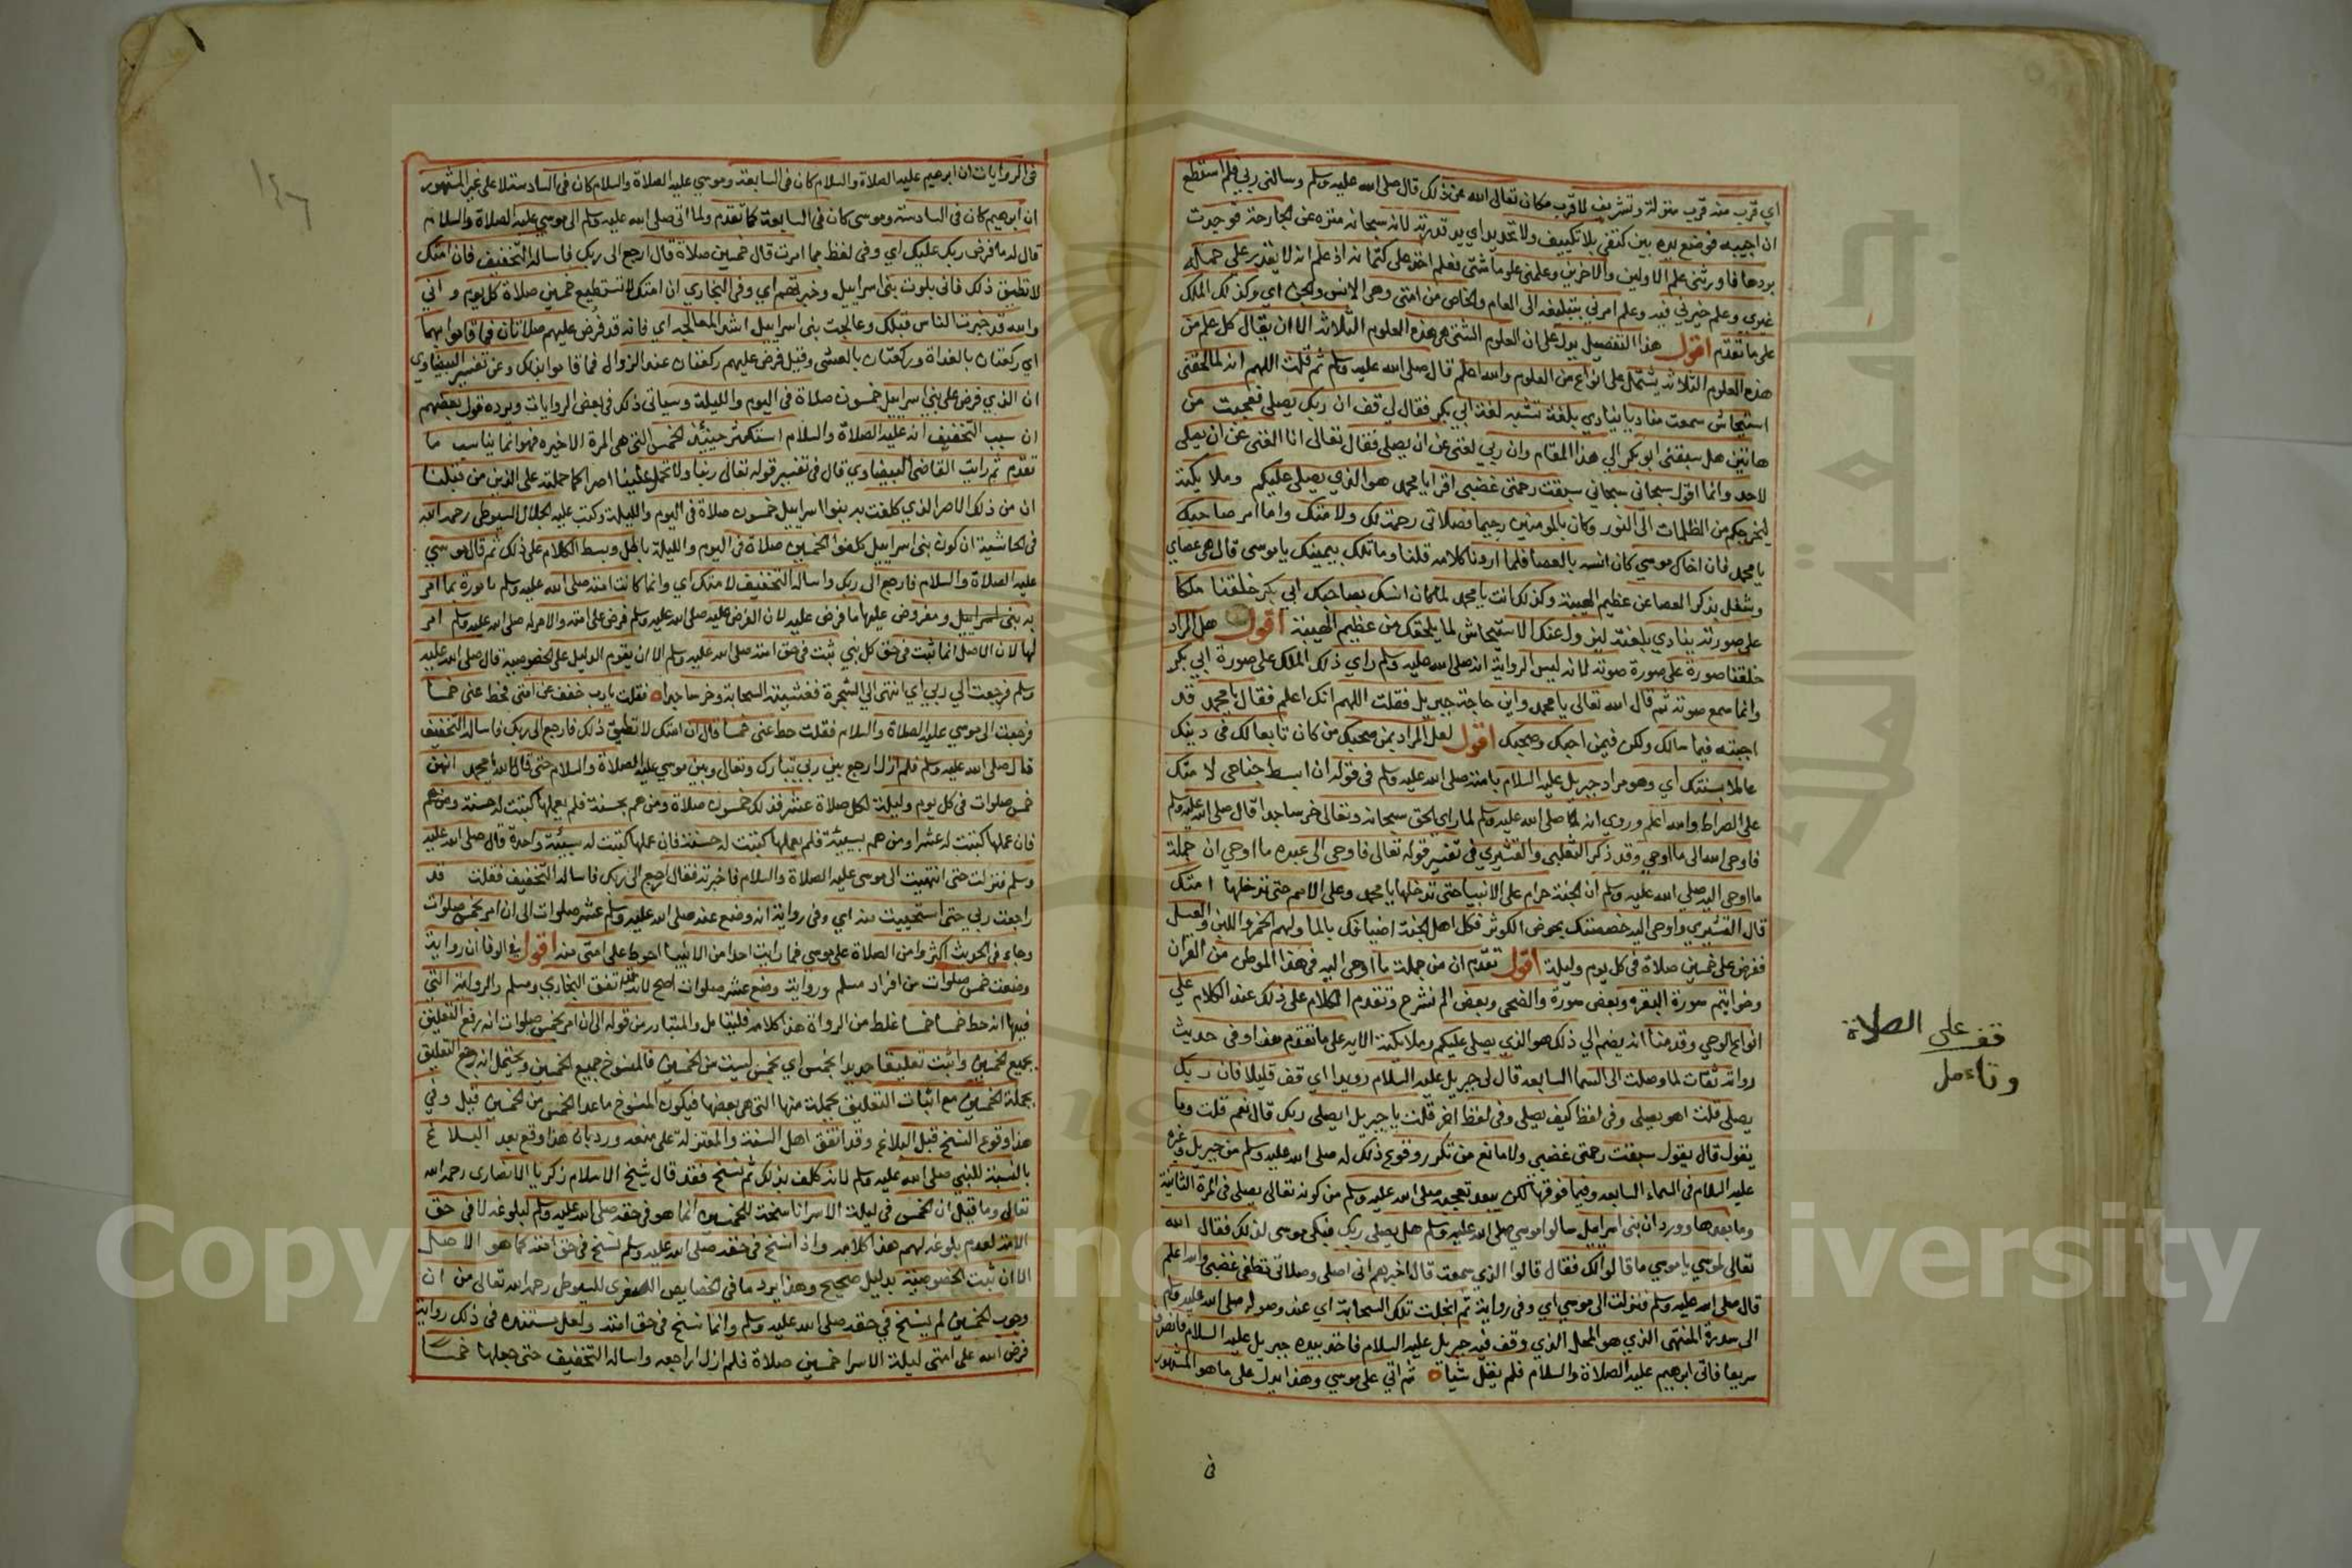 اي قرب منه قرب منزلة وتشريف لا قرب مكان تعالى الله عن ذلك قال صلى الله عليه وسلم وسالني ربي فلم استطع
ان اجيبه فوضع يده بين كتفي بلا تكييف ولا تحديد اي يد قدرته لانه سبحانه منزه عن الجارحة فوجدت
بردها فاورثني علم الاولين والاخرين وعلمني علوما شتى فعلم اخذ على كتمانه اذ علم انه لا يقدر على حمله
غيري وعلم خيرني فيه وعلم امرني بتبليغه الى العام والخاص من امتي وهم الانس والجن اي وكذلك الملك
على ما تقدم اقول هذا التفصيل يدل على ان العلوم الشتى هي هذه العلوم الثلاثة الا ان يقال كل علم من
هذه العلوم الثلاثة يشتمل على انواع من العلوم والله اعلم قال صلى الله عليه وسلم ثم قلت اللهم انه لما لحقني
استيحاش سمعت مناديا ينادي بلغة تشبه لغة ابي بكر فقال لي قف ان ربك يصلي فعجبت من
هاتين هل سبقني ابو بكر الي هذا المقام وان ربي لغني عن ان يصلي فقال تعالى انا الغني عن ان يصلي
لاحد وانما اقول سبحاني سبحاني سبقت رحمتي غضبي اقرا يا محمد هو الذي يصلي عليكم وملائكته
ليخرجكم من الظلمات الى النور وكان بالمومنين رحيما فصلاتي رحمة لك ولامتك واما امر صاحبك
يا محمد فان اخاك موسي كان انسه بالعصا فلما اردنا كلامه قلنا وما تلك بيمينك ياموسى قال هي عصاي
وشغل بذكر العصا عن عظيم الهيبة وكذلك انت يا محمد لما كان انسك بصاحبك ابي بكر خلقنا ملكا
على صورته ينادي بلغته ليزول عنك الاستيحاش لما يلحقك من عظيم الهيبة اقول هل المراد
خلقنا صورة على صورة صوته لانه ليس الرواية انه صلى الله عليه وسلم راي ذلك الملك على صورة ابي بكر
وانما سمع صوته ثم قال الله تعالى يا محمد واين حاجة جبريل فقلت اللهم انك اعلم فقال يا محمد قد
اجبته فيما سالك ولكن فيمن احبك وصحبك اقول لعل المراد بمن صحبك من كان تابعا لك في دينك
عاملا بسنتك اي وهو مراد جبريل عليه السلام بامته صلى الله عليه وسلم في قوله ان ابسط جناحي لامتك
على الصراط والله اعلم وروي انه لما صلى الله عليه وسلم لما راى الحق سبحانه وتعالى خر ساجدا قال صلى الله عليه وسلم
فاوحى الله الى ما اوحي وقد ذكر الثعلبي والقشيري في تفسير قوله تعالى فاوحى الى عبده ما اوحي ان جملة
ما اوحى اليه صلى الله عليه وسلم ان الجنة حرام على الانبيا حتى تدخلها يا محمد وعلى الامم حتى تدخلها امتك
قال القشيري واوحى اليه خصصتك بحوض الكوثر فكل اهل الجنة اضيافك بالما ولهم الخمر واللبن والعسل
ففرض على خمسين صلاة في كل يوم وليلة اقول تقدم ان من جملة ما اوحى اليه في هذا الموطن من القران
وخواتيم سورة البقرة وبعض سورة والضحى وبعض الم نشرح وتقدم الكلام على ذلك عند الكلام علي
انواع الوحي وقدمنا انه يضم الي ذلك هو الذي يصلي عليكم وملائكته الايه على ما تقدم هذا وفي حديث
رواته ثقات لما وصلت الى السما السابعه قال لي جبريل عليه السلام رويدا اي قف قليلا فان ربك
يصلي قلت اهو يصلي وفي لفظ كيف يصلي وفي لفظ اخر قلت يا جبريل ايصلي ربك قال نعم قلت وما
يقول قال يقول سبقت رحمتي غضبي ولا مانع من تكرر وقوع ذلك له صلى الله عليه وسلم من جبريل وغيره
عليه السلام في السماء السابعه وفيما فوقها لكن يبعد تعجبه صلى الله عليه وسلم من كونه تعالى يصلي في المرة الثانية
وما بعدها وورد ان بني اسراييل سالوا موسي صلى الله عليه وسلم هل يصلي ربك فبكى موسى لذلك فقال الله
تعالى لموسي يا موسي ما قالوا لك فقال قالوا الذي سمعت قال اخبرهم اني اصلي وصلاتي تطفي غضبي والله اعلم
قال صلى الله عليه وسلم فنزلت الى موسي اي وفي رواية ثم انجلت تلك السحابة اي عند وصوله صلى الله عليه وسلم
الى سدرة المنتهى الذي هو المحل الذي وقف فيه جبريل عليه السلام فاخذ بيده جبريل عليه السلام فانصرف
سريعا فاتى ابرهيم عليه الصلاة والسلام فلم يقل شيا ثم اتي على موسي وهذا يدل على ما هو المشهور
في
قف على الصلاة
وتامل
١٤٦
في الروايات ان ابرهيم عليه الصلاة والسلام كان في السابعة وموسي عليه الصلاة والسلام كان في السادسة لا على غير المشهور
ان ابرهيم كان في السادسة وموسى كان في السابعة كما تقدم ولما اتى صلى الله عليه وسلم الى موسي عليه الصلاة والسلام
قال له ما فرض ربك عليك اي وفي لفظ بما امرت قال خمسين صلاة قال ارجع الى ربك فاساله التخفيف فان امتك
لا تطيق ذلك فاني بلوت بني اسراييل وخبرتهم اي وفي البخاري ان امتك لا تستطيع خمسين صلاة كل يوم واني
والله قد خبرت الناس قبلك وعالجت بني اسراييل اشد المعالجه اي فانه قد فرض عليهم صلاتان فما قاموا بهما
اي ركعتان بالغداة وركعتان بالعشي وقيل فرض عليهم ركعتان عند الزوال فما قاموا بذلك وعن تفسير البيضاوي
ان الذي فرض على بني اسراييل خمسون صلاة في اليوم والليلة وسياتي ذلك في بعض الروايات ويرده قول بعضهم
ان سبب التخفيف انه عليه الصلاة والسلام استكثر حينئذ الخمس التي هي المرة الاخيره فهو انما يناسب ما
تقدم ثم رايت القاضي البيضاوي قال في تفسير قوله تعالى ربنا ولا تحمل علينا اصرا كما حملته على الذين من قبلنا
ان من ذلك الاصر الذي كلفت به بنوا اسراييل خمسون صلاة في اليوم والليلة وكتب عليه الجلال السيوطي رحمه الله
في الحاشية ان كون بني اسراييل كلفوا الخمسين صلاة في اليوم والليلة باطل وبسط الكلام على ذلك ثم قال موسي
عليه الصلاة والسلام فارجع الى ربك واساله التخفيف لامتك اي وانما كانت امته صلى الله عليه وسلم مامورة بما امر
به بني اسراييل ومفروض عليها ما فرض عليه لان الفرض عليه صلى الله عليه وسلم فرض على امته والامر له صلى الله عليه وسلم امر
لها لان الاصل انما ثبت في حق كل نبي ثبت في حق امته صلى الله عليه وسلم الا ان يقوم الدليل على الخصوصية قال صلى الله عليه
وسلم فرجعت الي ربي اي انتهى الي الشجرة فغشيته السحابة وخر ساجدا فقلت يا رب خفف عن امتي فحط عني خمسا
فرجعت الى موسي عليه الصلاة والسلام فقلت حط عني خمسا قال ان امتك لا تطيق ذلك فارجع الى ربك فاساله التخفيف
قال صلى الله عليه وسلم فلم ازل ارجع بين ربي تبارك وتعالى وبين موسي عليه الصلاة والسلام حتى قال الله يا محمد انهن
خمس صلوات في كل يوم وليلة لكل صلاة عشر فذلك خمسون صلاة ومن هم بحسنة فلم يعملها كتبت له حسنة ومن هم
فان عملها كتبت له عشرا ومن هم بسيئة فلم يعملها كتبت له حسنة فان عملها كتبت له سيئة واحدة قال صلى الله عليه
وسلم فنزلت حتى انتهيت الى موسى عليه الصلاة والسلام فاخبرته فقال ارجع الى ربك فاساله التخفيف فقلت قد
راجعت ربي حتى استحييت منه اي وفي رواية انه وضع عنه صلى الله عليه وسلم عشر صلوات الى ان امر بخمس صلوات
وجاء في الحديث اكثروا من الصلاة على موسي فما رايت احدا من الانبيا احوط على امتي منه اقول في الوفا ان رواية
وضعت خمس صلوات من افراد مسلم ورواية وضع عشر صلوات اصح لانه قد اتفق البخاري ومسلم والرواية التي
فيها انه حط خمسا خمسا غلط من الرواة هذا كلامه فليتامل والمتبادر من قوله الى ان امر بخمس صلوات انه رفع التعليق
بجميع الخمسين واثبت تعليقا جديدا بخمس اي بخمس ليست من الخمسين فالمنسوخ جميع الخمسين ويحتمل انه رفع التعليق
بجملة الخمسين مع اثبات التعليق بجملة منها التي هي بعضها فيكون المنسوخ ما عدا الخمس من الخمسين قبل وفي
هذا وقوع النسخ قبل البلاغ وقد اتفق اهل السنة والمعتزلة على منعه ورد بان هذا وقع بعد البلاغ
بالنسبة للنبي صلى الله عليه وسلم لانه كلف بذلك ثم نسخ فقد قال شيخ الاسلام زكريا الانصاري رحمه الله
تعالى وما قيل ان الخمس في ليلة الاسرا ناسخة للخمسين انما هو في حقه صلى الله عليه وسلم لبلوغه له لا في حق
الامة لعدم بلوغه لهم هذا كلامه واذا نسخ في حقه صلى الله عليه وسلم نسخ في حق امته كما هو الاصل
الا ان ثبت الخصوصية بدليل صحيح وهذا يرد ما في الخصايص الصغرى للسيوطي رحمه الله تعالى من ان
وجوب الخمسين لم ينسخ في حقه صلى الله عليه وسلم وانما نسخ في حق امته ولعل مستنده في ذلك رواية
فرض الله على امتي ليلة الاسرا خمسين صلاة فلم ازل اراجعه واساله التخفيف حتى جعلها خمسا